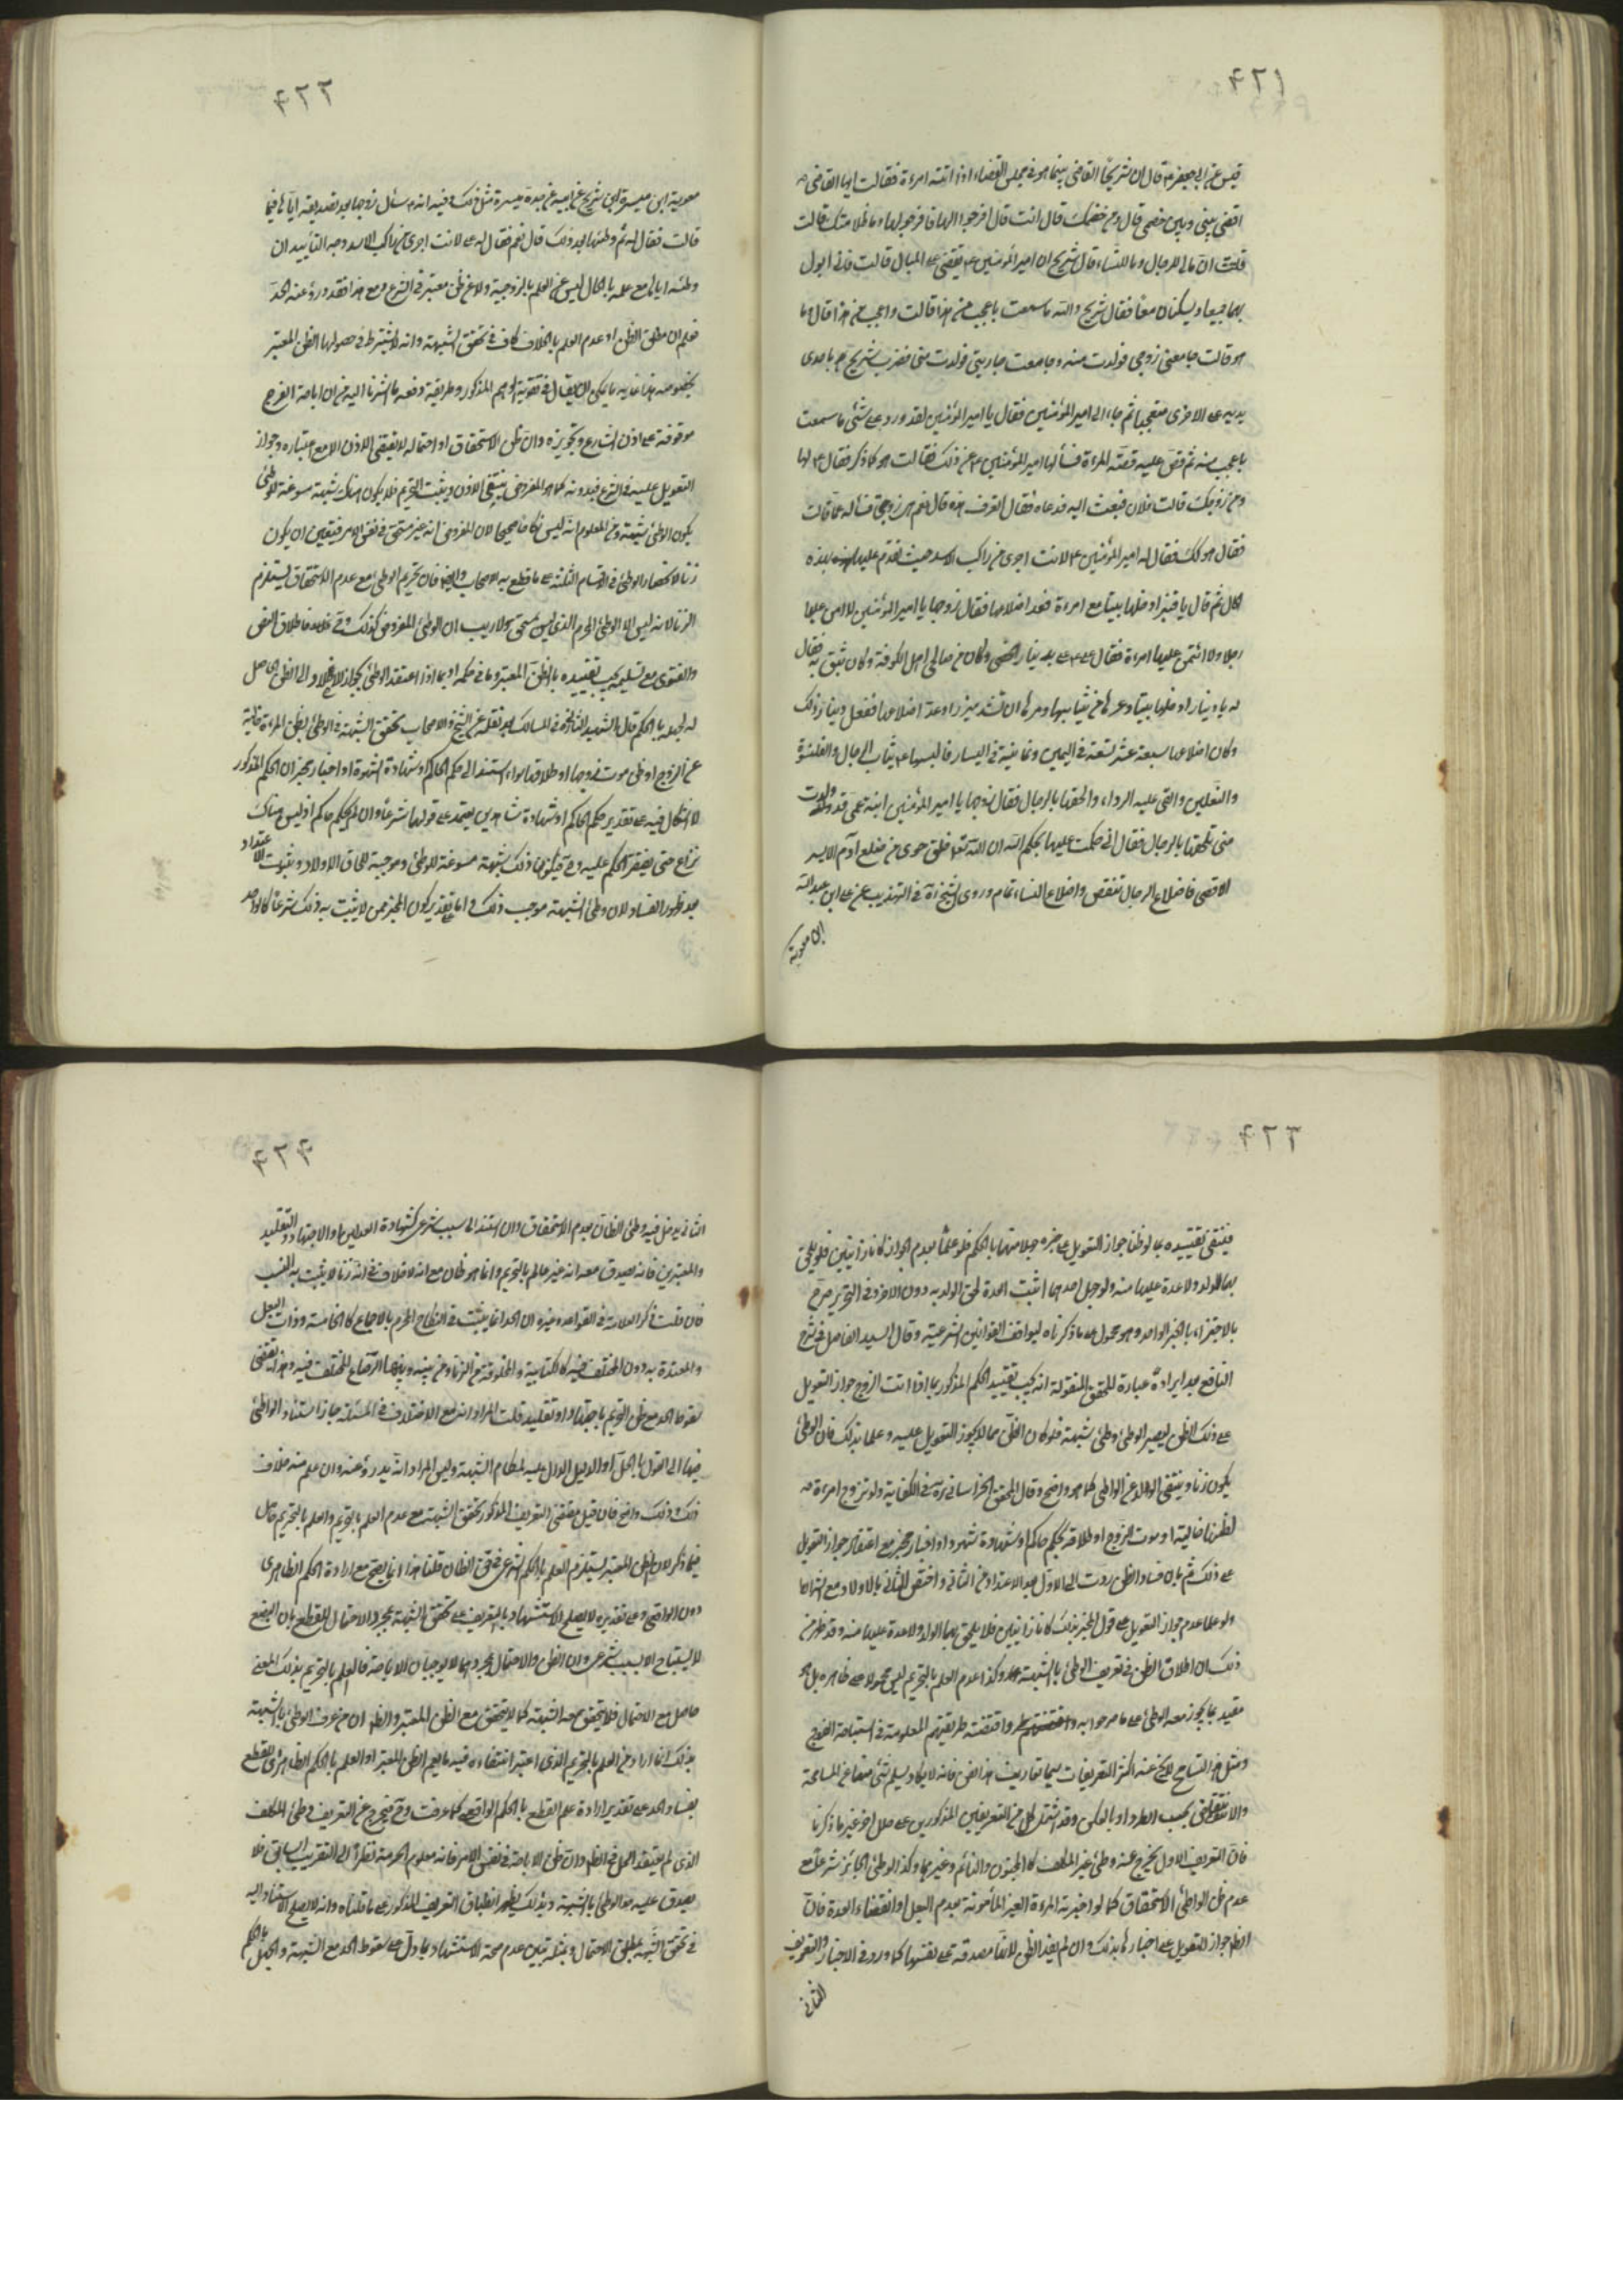 ٤٢١
قيس عن ابي جعفر ع قال ان شريحاً القاضي بينما هو في مجلس القضاء اذ اتته امرءة فقالت ايها القاضي
اقض بيني وبين خصمي قال ومن خصمك قالت انت قال افرجوا لها فافرجوا لها وما ظلامتك قالت
قلت ان لي ما للرجال وما للنساء قال شريح ان امير المؤمنين ع يقضي على المبال قالت فاني ابول
بهما جميعا ويسكنان معا فقال شريح والله ما سمعت باعجب من هذا قالت واعجب من هذا قال وما
هو قالت جامعني زوجي فولدت منه وجامعت جاريتي فولدت مني فضرب شريح باحدى
يديه على الاخرى متعجبا ثم جاء الى امير المؤمنين فقال يا امير المؤمنين لقد ورد على شئ ما سمعت
باعجب منه ثم قص عليه قصة المرءة فسألها امير المؤمنين ع عن ذلك فقالت هو كما ذكر فقال ع لها
ومن زوجك قالت فلان فبعث اليه فدعاه فقال اتعرف هذه قال نعم هي زوجتي فسأله عما قالت
فقال هو كذلك فقال له امير المؤمنين ع لانت اجرى من راكب الاسد حيث تقدم عليها بهذه
الحال ثم قال يا قنبر ادخلها بيتا مع امرءة فعد اضلاعها فقال زوجها يا امير المؤمنين لا امن عليها
رجلا ولا ائتمن عليها امرءة فقال علي ع علي بدينار الخصي وكان من صالحي اهل الكوفة وكان يثق به فقال
له يا دينار ادخلها بيتا وعرها من ثيابها ومرها ان تشد ميزرا وعد اضلاعها ففعل دينار ذلك
وكان اضلاعها سبعة عشر تسعة في اليمين وثمانية في اليسار فالبسها ع ثياب الرجال والقلنسوة
والنعلين والقى عليه الرداء والحقها بالرجال فقال زوجها يا امير المؤمنين ابنة عمي قد ولدت
مني تلحقها بالرجال فقال اني حكمت عليها بحكم الله ان الله تعالى خلق حوى من ضلع آدم الايسر
الاقصى فاضلاع الرجال تنقص واضلاع النساء تمام وروى الشيخ ره في التهذيب عن علي ابن عبد الله
ابن معوية
٤٢٢
معوية ابن ميسرة ابن شريح عن ابيه عن جده ميسرة مثل ذلك وفيه انه سئل زوجها بعد تصديقه اياها فيما
قالت فقال له ثم وطئتها بعد ذلك قال نعم فقال له على لانت اجرى من راكب الاسد وجه التأييد ان
وطئه اياها مع علمه بالحال ليس عن العلم بالزوجية ولا عن ظن معتبر في الشرع ومع هذا فقد درؤ عنه الحد
فعلم ان مطلق الظن او عدم العلم بالخلاف كاف في تحقق الشبهة وانه لا يشترط في حصولها الظن المعتبر
بخصوصه هذا غاية ما يمكن ان يقال في تقوية الوهم المذكور وطريقة دفعه ما اشرنا اليه من ان اباحة الفرج
موقوفة على اذن الشارع وتجويزه وان ظن الاستحقاق او احتماله لا يقتضي الاذن الا مع اعتباره وجواز
التعويل عليه في الشرع فبدونه كما هو المفروض ينتفي الاذن ويثبت التحريم فلا يكون هناك شبهة مسوغة للوطئ
يكون الوطئ شبهة ومن المعلوم انه ليس نكاحا صحيحا لان المفروض انه غير مستحق في نفس الامر فيتعين ان يكون
زنا لانحصار الوطئ في الاقسام الثلثة على ما قطع به الاصحاب وايضا فان تحريم الوطئ مع عدم الاستحقاق يستلزم
الزنا لانه ليس الا الوطئ المحرم الذي ليس بمستحق ولا ريب ان الوطئ المفروض كذلك
والفتوى مع تسليمه يجب تقييده بالظن المعتبر وما في حكمه او بما اذا اعتقد الواطئ الجواز
له بجهله بالحكم قال الشهيد الثاني ره في المسالك بعد نقله عن الشيخ والاصحاب تحقق الشبهة في الوطئ بظن المرءة خالية
عن الزوج او ظن موت زوجها او طلاقها سواء استند الى حكم الحاكم او شهادة الشهود او اخبار مخبر ان الحكم المذكور
لا اشكال فيه على تقدير حكم الحاكم او شهادة شاهدين يعتمد على قولهما شرعا وان لم يحكم حاكم اذ ليس هناك
نزاع حتى يفتقر الحكم عليه وح فيكون ذلك شبهة مسوغة للوطئ وموجبة للحاق الاولاد وثبوت الاعتداد
بعد ظهور الفساد لان وطئ الشبهة موجب ذلك واما على تقدير كون المخبر ممن لا يثبت به ذلك شرعا كالواحد
٤٢٣
فينبغي تقييده بما لو ظنا جواز التعويل على خبره جهلا منهما بالحكم فلو علما بعدم الجواز كانا زانيين فلا يلحق
بهما الولد ولا عدة عليها منه ولو جهل احدهما اثبت العدة لحق الولد به دون الاخر وفي التحرير صرح
بالاجتزاء بالخبر الواحد وهو محمول على ما ذكرناه ليوافق القوانين الشرعية وقال السيد الفاضل في شرح
النافع بعد ايراده عبارة للمحقق المنقولة انه يجب تقييد الحكم المذكور بما اذا اعتقد الزوج جواز التعويل
على ذلك الظن ليصير الوطئ وطئ شبهة فلو كان الظن مما لا يجوز التعويل عليه وعلما بذلك فان الوطئ
يكون زنا وينتفي الولد عن الواطئ كما هو واضح وقال المحقق الخراساني ره في الكفاية ولو تزوج امرءة
لظنها خالية او موت الزوج او طلاقه بحكم حاكم او شهادة شهود او اخبار مخبر مع اعتقاد جواز التعويل
على ذلك ثم بان فساد الظن ردت الى الاول بعد الاعتداد من الثاني واختص الثاني بالاولاد مع
ولو علما عدم جواز التعويل على قول المخبر بذلك كانا زانيين فلا يلحق بهما الولد ولا عدة عليها منه وقد ظهر من
ذلك ان اطلاق الظن في تعريف الوطئ بالشبهة وكذا عدم العلم بالتحريم ليس محمولا على ظاهره بل هو
مقيد بما يجوز معه الوطئ على ما صرحوا به واقتضته طريقتهم المعلومة في استباحة الفروج
ومثل هذا التسامح لا يخ عنه اكثر التعريفات سيما تعاريف هذا الفن فانه لا يكاد يسلم شئ منها عن المسامحة
والانتقاض بحسب الطرد او بالعكس وقد اشتمل كل من التعريفين المذكورين على خلل اخر غير ما ذكرنا
فان التعريف الاول يخرج عنه وطئ غير المكلف كالمجنون والنائم وغيرهما وكذا الوطئ الجائز شرعا مع
عدم ظن الواطئ الاستحقاق كما لو اخبرته المرءة الغير المأمونة بعدم البعل او انقضاء العدة فان
الظ جواز التعويل على اخبارها بذلك وان لم يفد الظن لانها مصدقة على نفسها كما ورد في الاخبار والتعريف
الثاني
٤٢٤
الثاني يدخل فيه وطئ الظان بعدم الاستحقاق وان استند الى سبب شرعي كشهادة العدلين او الاجتهاد والتقليد
والمعتبرين فانه يصدق معه انه غير عالم بالتحريم وانما هو ظان مع انه لا خلاف في انه زنا لا يثبت به النسب
فان قلت ذكر العلامة في القواعد وغيره ان الحد انما يثبت في النكاح المحرم بالاجماع كالخامسة وذات البعل
والمعتدة به دون المختلف فيه كالكتابية والمخلوقة من الزنا ومن بينه وبينها الرضاع المختلف فيه وهذا يقتضي
سقوط الحد مع ظن التحريم باجتهاد او تقليد قلت المراد انه مع الاختلاف في المسئلة جاز استناد الواطئ
فيها الى القول بالحل او الدليل الدال عليه لمكان الشبهة وليس المراد انه يدرؤ عنه وان علم منه خلاف
ذلك وذلك واضح فان قيل مقتضى التعريف المذكور تحقق الشبهة مع عدم العلم بالتحريم والعلم بالتحريم حاصل
فيما ذكر لان الظن المعتبر يستلزم العلم بالحكم الشرعي في حق الظان قلنا هذا انما يصح مع ارادة الحكم الظاهري
دون الواقعي وعلى تقديره لا يصلح الاستشهاد بالتعريف على تحقق الشبهة بمجرد الاحتمال للقطع بان البضع
لا يستباح الا بسبب شرعي وان الظن والاحتمال بمجردهما لا يوجبان الاباحة فالعلم بالتحريم بذلك المعنى
حاصل مع الاحتمال فلا يتحقق معه الشبهة كما لا يتحقق مع الظن المعتبر والظ ان من عرف الوطئ بالشبهة
بذلك انما اراد من العلم بالتحريم الذي اعتبر انتفاءه فيه ما يعم الظن المعتبر او العلم بالحكم الظاهري للقطع
بفساد الحد على تقدير ارادة القطع بالحكم الواقعي كما عرفت وح فيخرج عن التعريف وطئ المكلف
الذي لم يعتقد الحل من الظ وان ظن الاباحة في نفس الامر فانه معلوم الحرمة نظرا الى التقريب السابق فلا
يصدق عليه حد الوطئ بالشبهة وبذلك يظهر انطباق التعريف المذكور على ما قلناه وانه لا يصلح الاستناد اليه
في تحقق الشبهة بمطلق الاحتمال وبمثله يتبين عدم صحة الاستشهاد بما دل على سقوط الحد مع الشبهة والجهل بالحكم